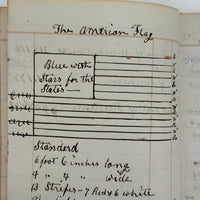 The Amtrian Flag
Blue with
Stars for the
States —
Standerd
6 foot 6 inches long
4 " 4 " wide
13 Stripes - 7 Red & 6 white